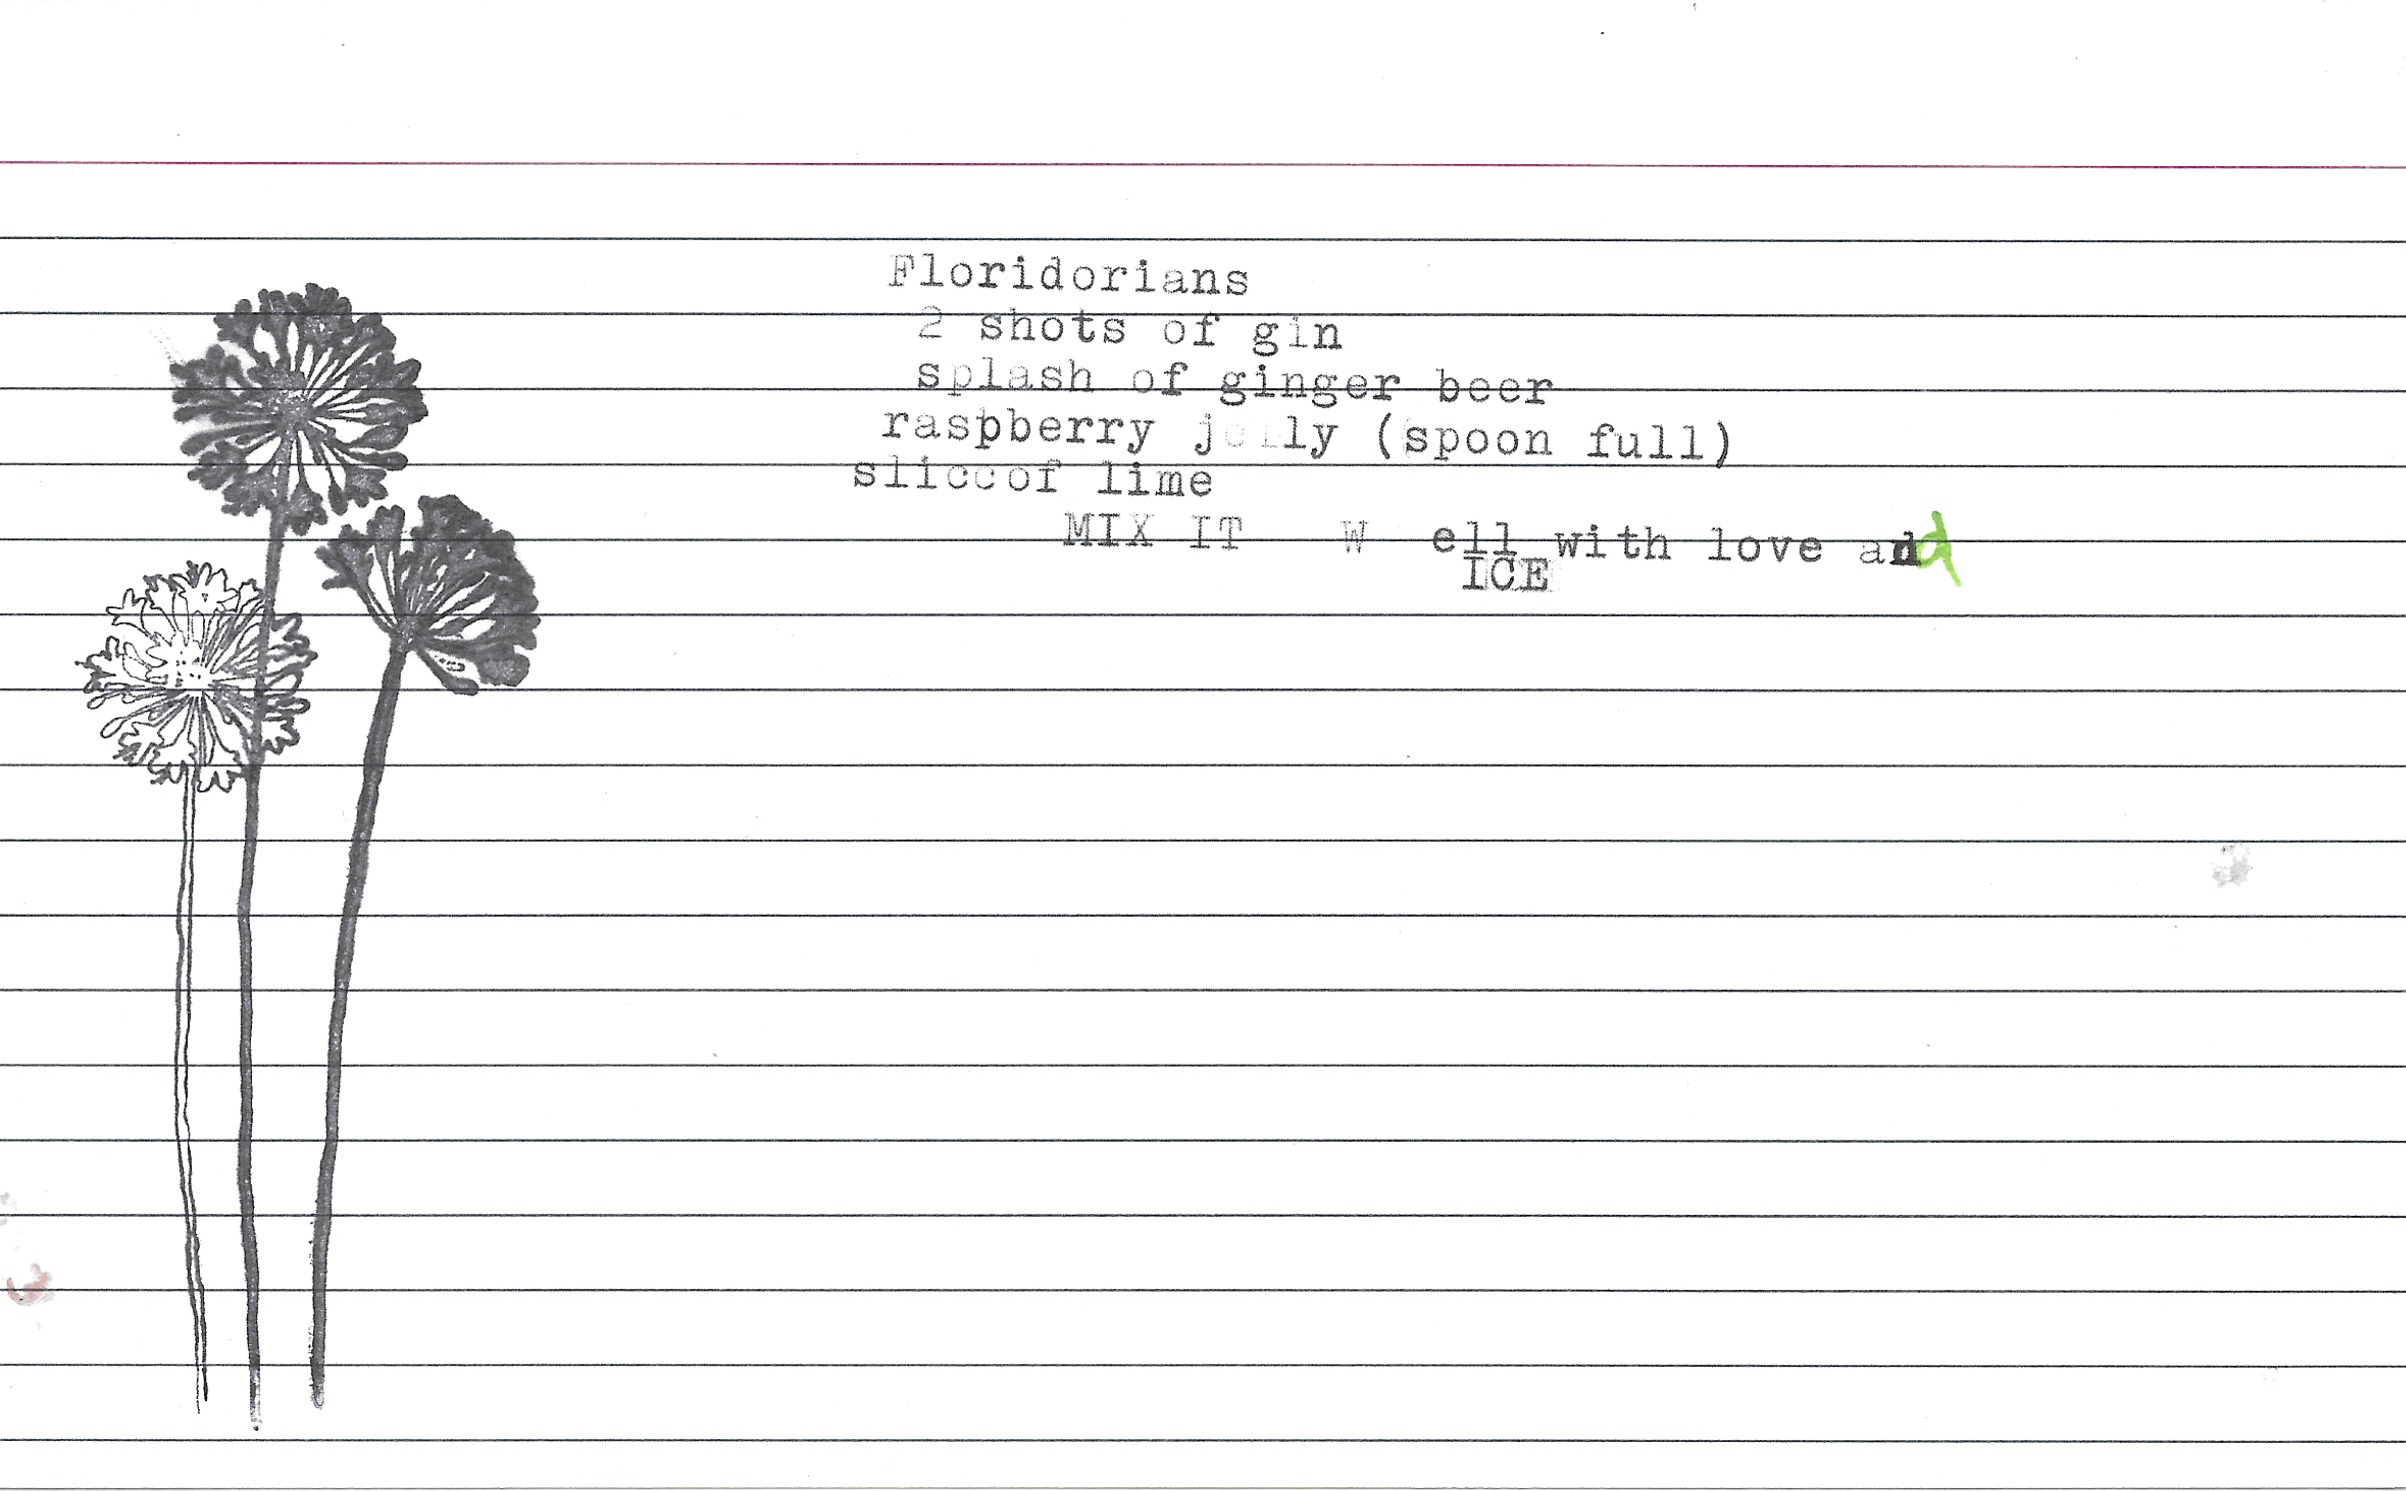 Floridorians
2 shots of gin
splash of ginger beer
raspberry jelly (spoon full)
slice of lime
MIX IT W ell with love and
ICE